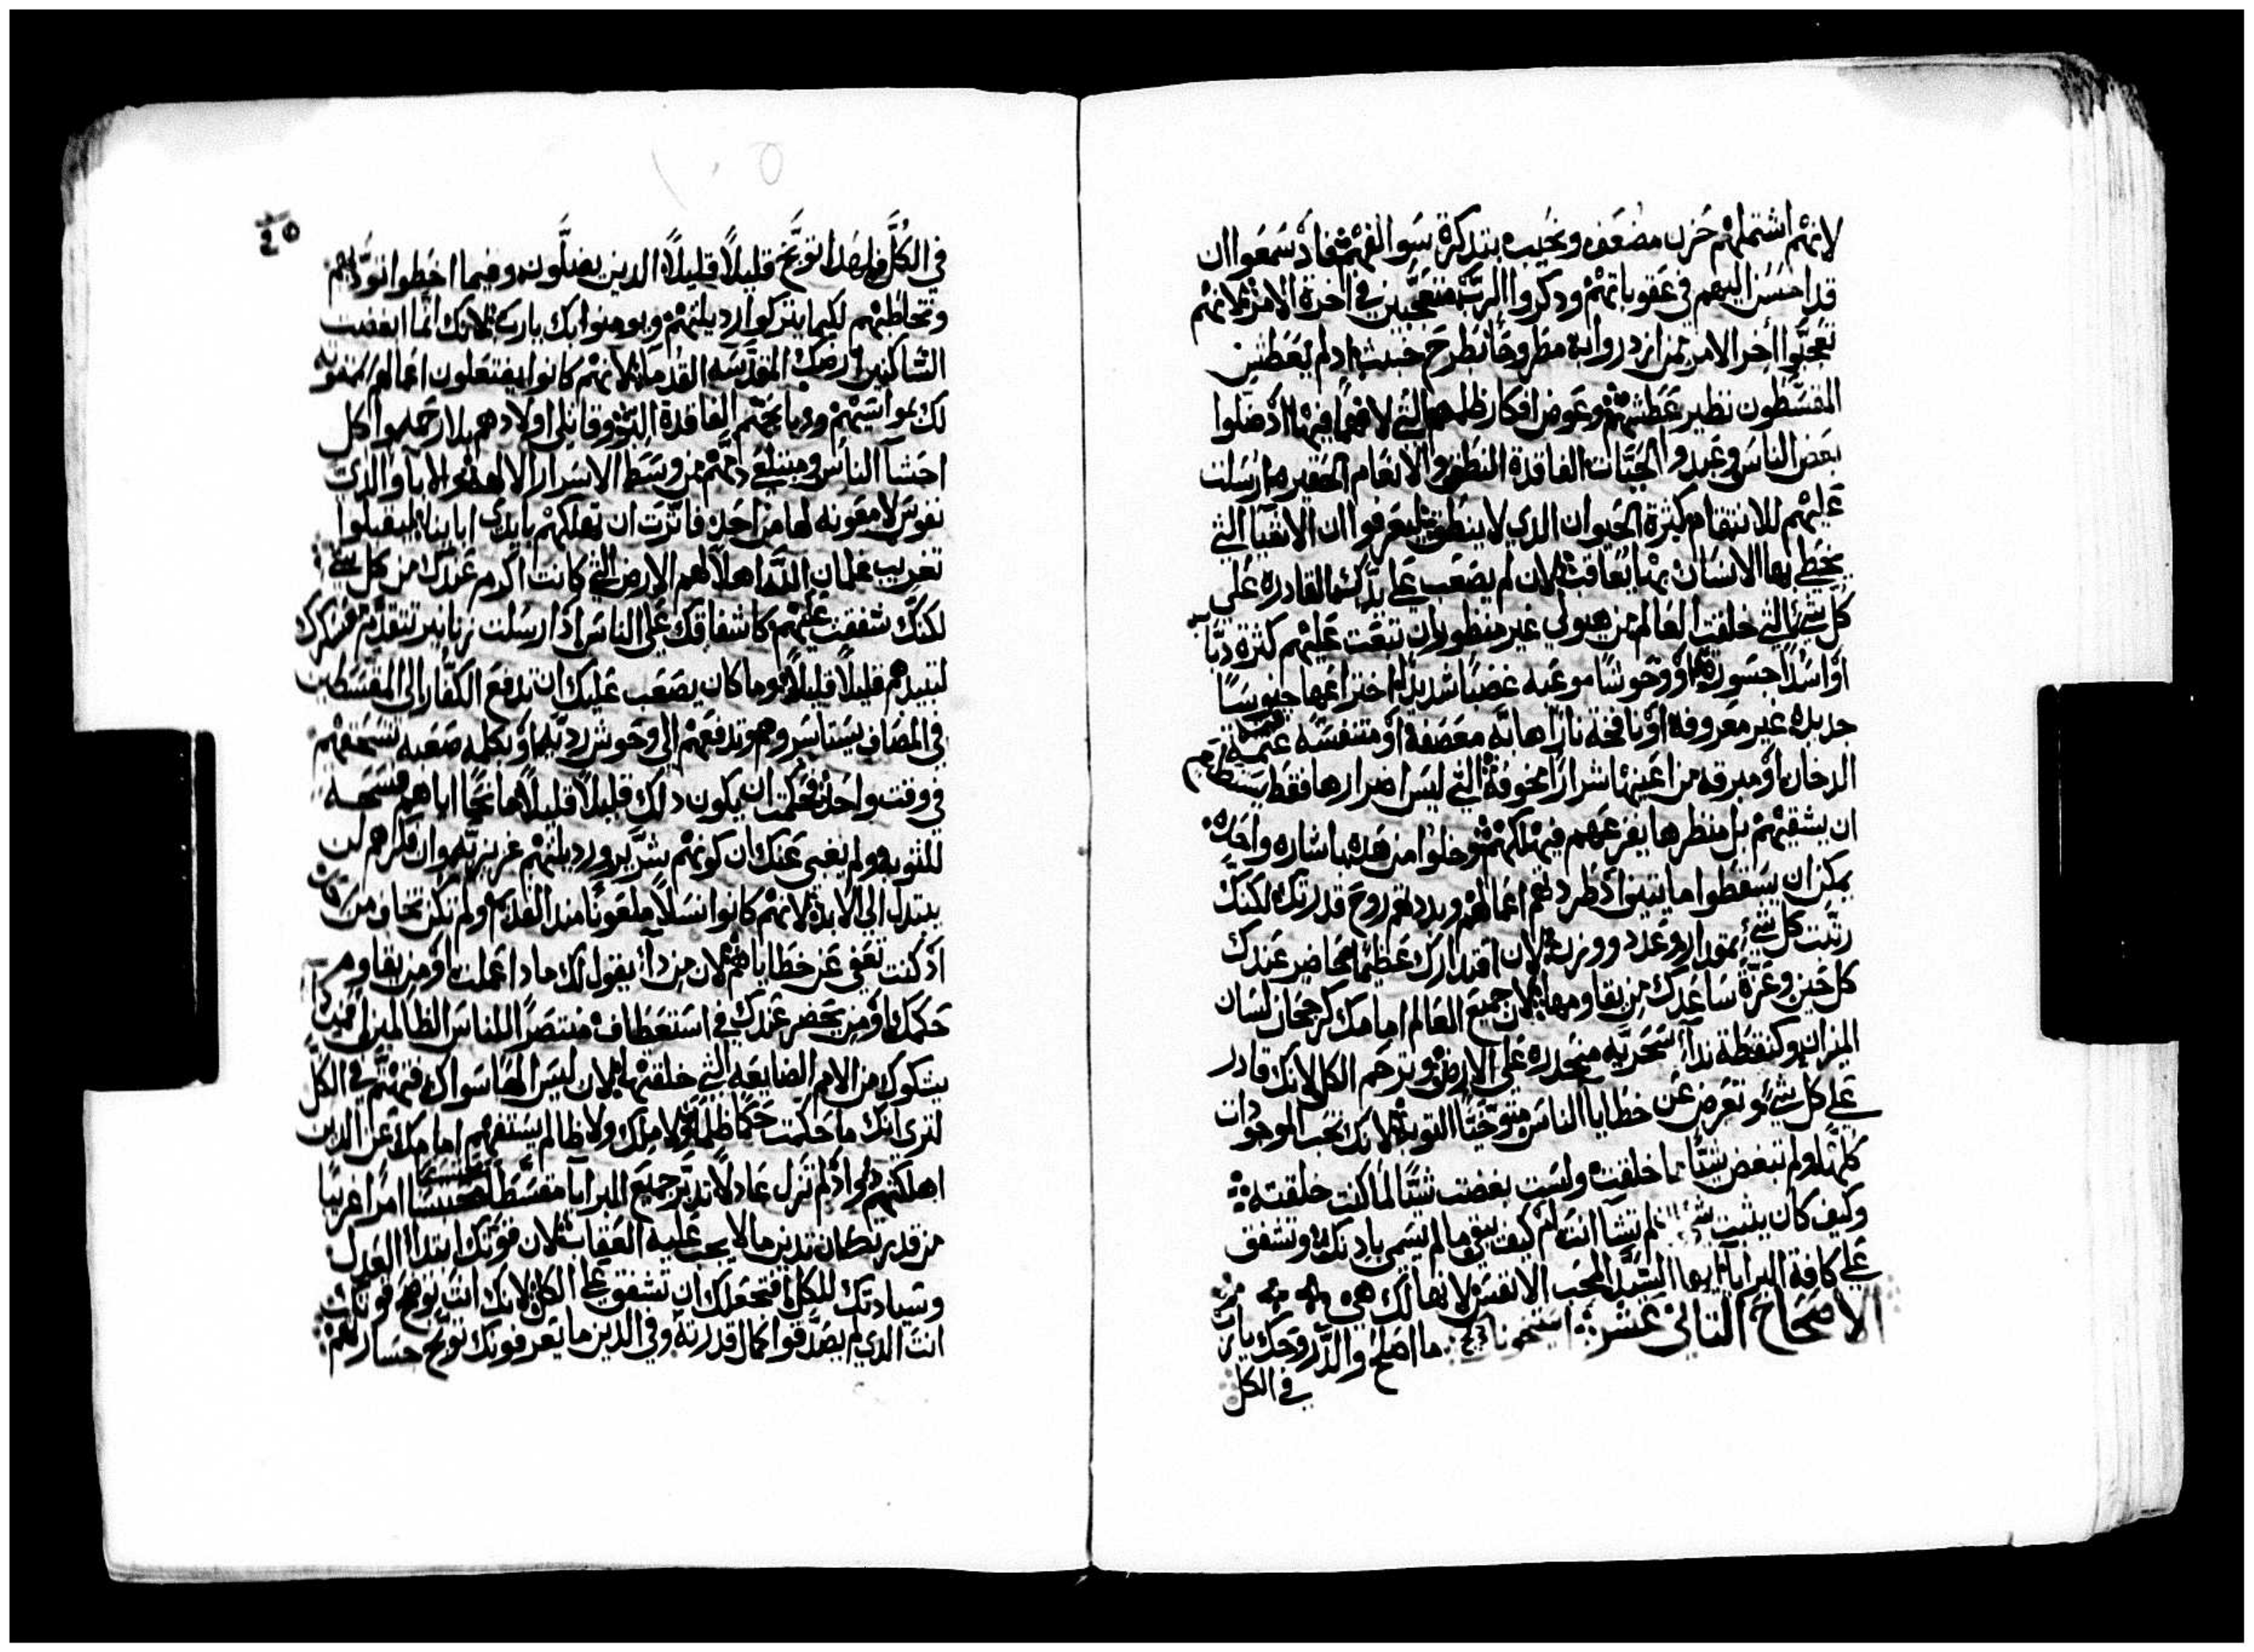 لانهم اشتملهم حزن مضعف ونحيب بتدكرة سوالفهم فاذ سمعوا ان
قد احسن اليهم في عقوباتهم ودكروا الرب متعجبين في اخرة الامر لانهم
تعجبوا اخر الامر ممن ازدروا به مطروحا بطرح خبيث ادلم يعطش
المقسطون نظير عطشهم وعوض افكار ظلمهم التي لا فهم فيها اذ ضلوا
بعض الناس وعبدوا الحيات الفاقدة النطق والانعام الحقيره ارسلت
عليهم للانتقام كثرة الحيوان الدي لا ينطق ليعرفوا ان الاشيا التي
يخطي بها الانسان بها يعاقب لان لم يصعب على يدك القادره على
كل شي التي خلقت العالم من هيولي غير منظور ان تبعت عليهم كثرة دباب
او اسدا جسوره او وحوشا موعبه غضبا شديدا اختراعها جنوسا
جديده غير معروفه او نافخة نارا هابه معصفة او متنفسه عتمة
الدخان او مبرقه من اعينها شرارا مخوفة التي ليس اضرارها فقط يستطيع
ان يشقيهم بل منظرها يفزعهم فيهلكهم وخلوا من هده باشاره واحده
يمكن ان يسقطوا مايتين اذ طردتهم اعمالهم وبددتهم روح قدرتك لكنك
رتبت كل شي بمقدار وعدد ووزن لان اقتدارك عظيما حاضر عندك
كل حين وعزة ساعدك من يقاومها لان جميع العالم امامك كرجحان لسان
الميزان وكنقطة ندآ سحريه منحدره على الارض وترحم الكل لانك قادر
على كل شي وتعرض عن خطايا الناس متوخيا التوبة لانك تحب الموجودات
كلها ولم تبغض شيا مما خلقت ولست بغضت شيا لما كنت خلقته
وكيف كان يثبت شي لم تشا انت ام كيف يبقى ما لم يسمى بادنك وتشفق
على كافة البرايا ايها السيد المحب الانفس لانها لك هي
الاصحاح الثاني عشر ما اصلح والد روحك يارب
في الكل
في الكل ولهدا توبخ قليلا قليلا الدين يضلون وفيما اخطوا تودبهم
وتخاطبهم لكيما يتركوا ردیلتهم ويومنوا بك يارب لانك انما ابغضت
الساكنين ارضك المقدسه القدما لانهم كانوا يفتعلون اعمالهم ممقوته
لك بمواسيهم ودبايحهم الفاقدة البر وقاتلي اولادهم بلا رحمه واكل
احشآ الناس ومبتلعي دمهم من وسط الاسرار الالاهيه والابا والدي
نفوس لا معونه لها من احد فاثرت ان تهلكهم بايدي ابائنا ليقبلوا
تغريب غلمان الله اهلا لهم الارض التي كانت اكرم عندك من كل شي
لكنك شفقت عليهم كاشفاقك على الناس اذ ارسلت زنابير تتقدم عسكرك
لتبيدهم قليلا قليلا وما كان يصعب عليك ان تدفع الكفار الى المقسطين
في المصاف يستاسروهم وتدفعهم الى وحوش رديه او بكلمه صعبه تسحقهم
في وقت واحد فحكمت ان يكون دلك قليلا قليلا مانحا اياهم فسحة
للتوبه ولم يغبى عنك ان كونهم شرير ورديلتهم غريزيه وان فكرهم لن
يبتدل الى الابد لانهم كانوا نسلا ملعونا مند القدم ولم تكن تخاف من
اد كنت تعفي عن خطاياهم لان من دا يقول لك مادا عملت او من يقاوم
حكمك او من يحضر عندك في استعطاف منتصرا للناس الظالمين او من
يشكوك من الامم الضايعه التي خلقتها لان ليس الها سواك فتهتم في الكل
لتري انك ما حكمت حكما ظلما ولا ملك ولا ظالم يستفهم امامك عن الدين
اهلكتهم واذ لم تزل عادلا تدبر جميع البرايا مقسطا امرا غريبا
من قدرتك ان تدين ما لا يجب عليه العقاب لان قوتك ابتدا العدل
وسيادتك للكل فتجعلك ان تشفق على الكل لانك انت توضح قوتك
انت الدي لم يصدقوا كمال قدرته وفي الدين ما يعرفونك توبخ جسارتهم